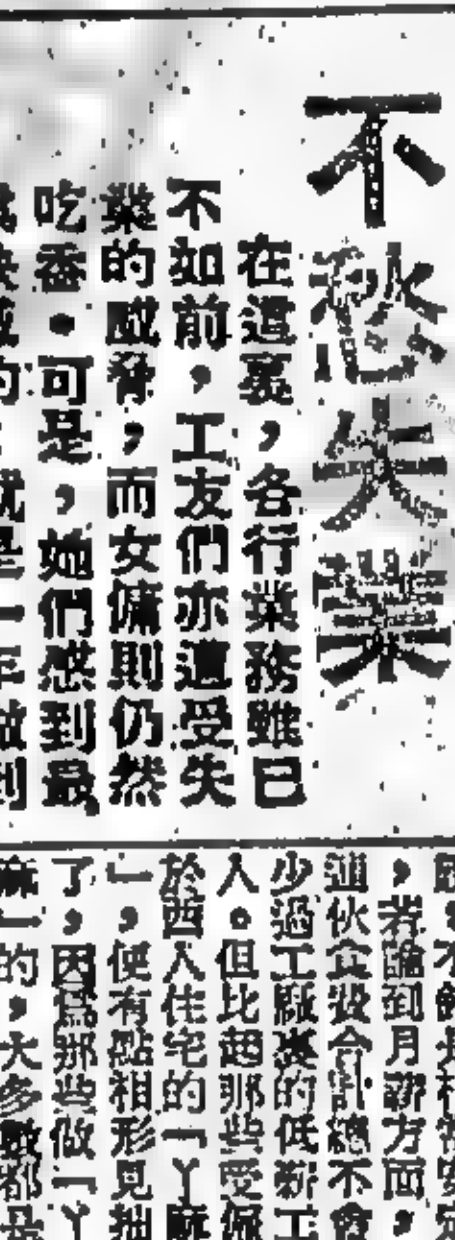 不愁失業
在這裏，各行業務雖已
不如前，工友們亦遭受失
業的威脅，而女傭則仍然
吃香。可是，她們感到最
，若論到月薪方面，
連伙食被合計總不會
少過工廠裏的低薪工
人。但比起那些受僱
於西人住宅的「丫麻
」，便有點相形見拙
了，因為那些做「丫
麻」的，大多數都是